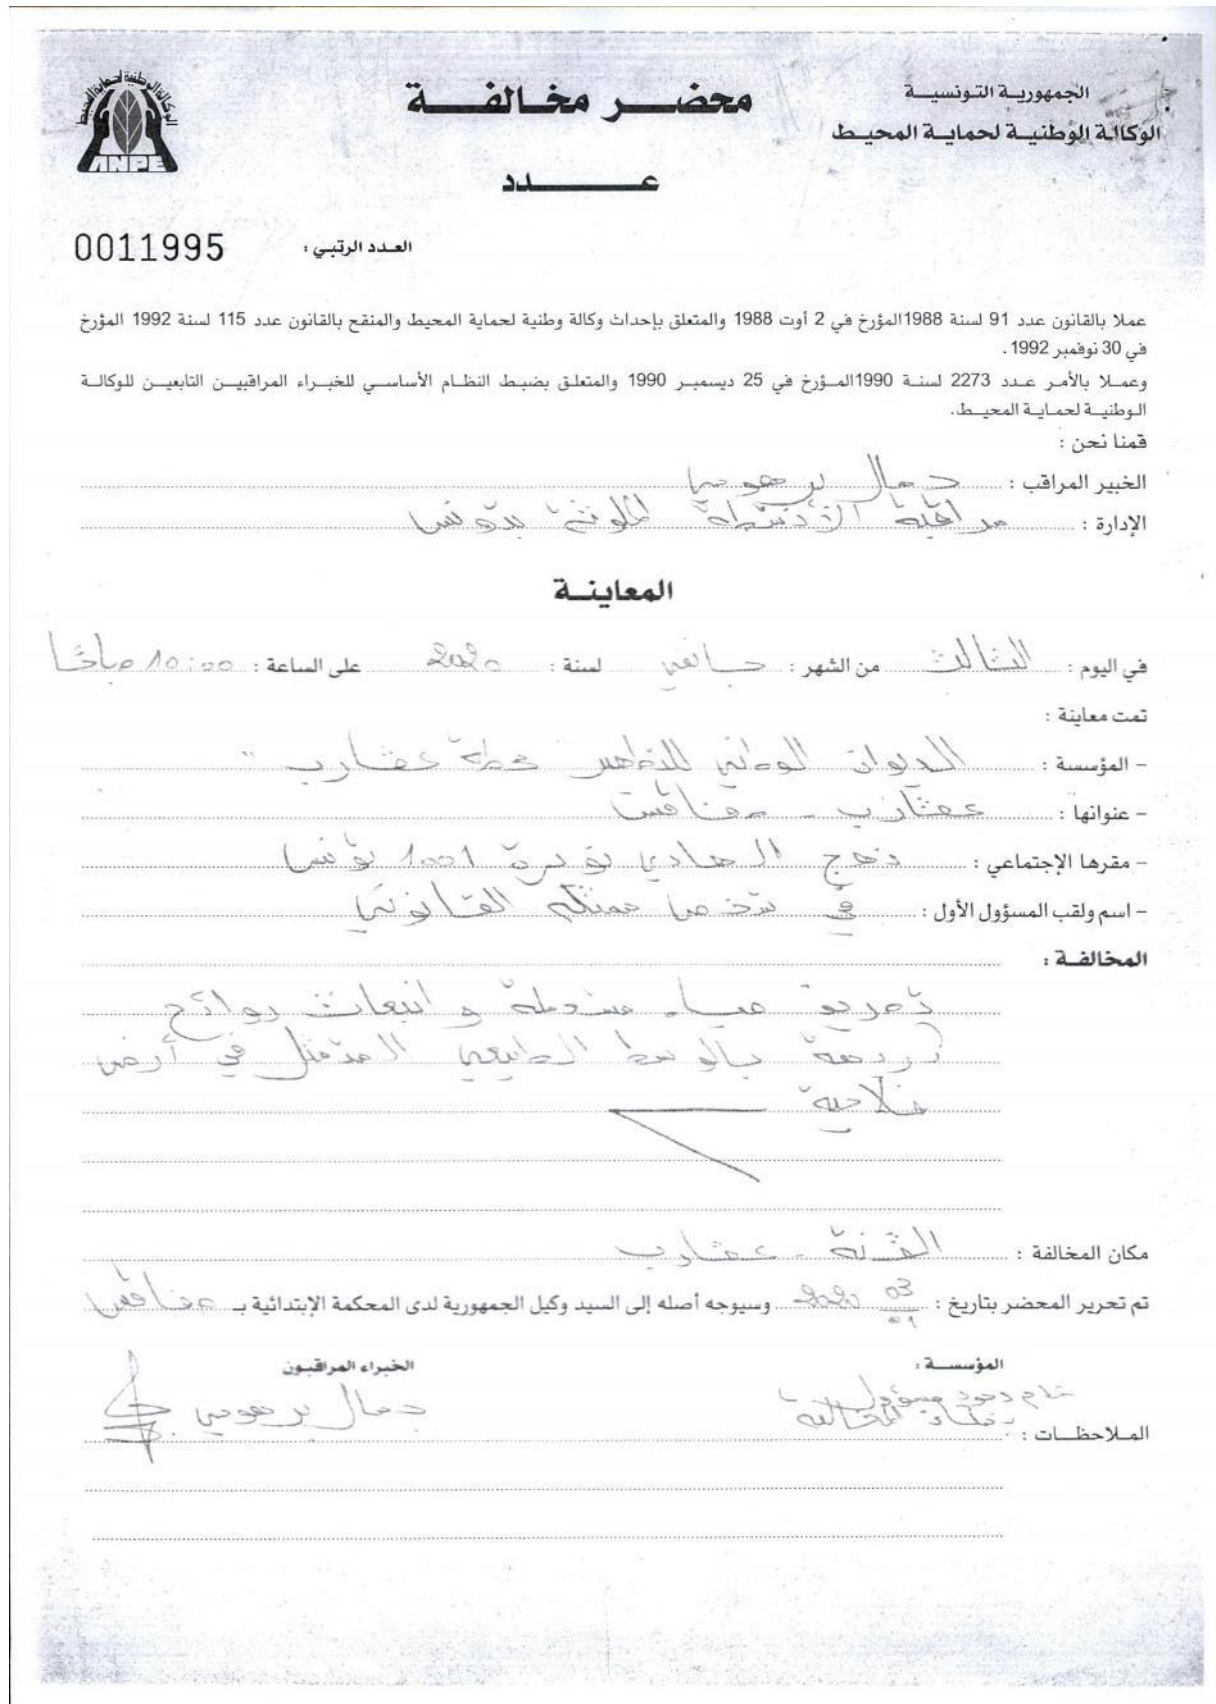 الجمهورية التونسية
الوكالة الوطنية لحماية المحيط
محضر مخالفة
عدد
الوكالة الوطنية لحماية المحيط
ANPE
العدد الرتبي : 0011995
عملا بالقانون عدد 91 لسنة 1988 المؤرخ في 2 أوت 1988 والمتعلق بإحداث وكالة وطنية لحماية المحيط والمنقح بالقانون عدد 115 لسنة 1992 المؤرخ
في 30 نوفمبر 1992.
وعملا بالأمر عدد 2273 لسنة 1990 المؤرخ في 25 ديسمبر 1990 والمتعلق بضبط النظام الأساسي للخبراء المراقبين التابعين للوكالة
الوطنية لحماية المحيط.
قمنا نحن :
الخبير المراقب : جمال برهومي
الإدارة : مراقبة الأنشطة الملوثة بتونس
المعاينة
في اليوم : الثالث من الشهر : جانفي لسنة : 2020 على الساعة : 10:00 صباحا
تمت معاينة :
- المؤسسة : الديوان الوطني للتطهير محطة عقارب "
- عنوانها : عقارب - صفاقس
- مقرها الإجتماعي : نهج الهادي نويرة 1001 تونس
- اسم ولقب المسؤول الأول : في شخص ممثله القانوني
المخالفة :
تصريف مياه مستعملة و انبعاث روائح
كريهة بالوسط الطبيعي المتمثل في أرض
فلاحية
مكان المخالفة : القنة - عقارب
تم تحرير المحضر بتاريخ : 03 01 2020 وسيوجه أصله إلى السيد وكيل الجمهورية لدى المحكمة الإبتدائية بـ صفاقس
المؤسسة :
الخبراء المراقبون
وجود مسؤول
جمال برهومي
المخالفة
الملاحظات :